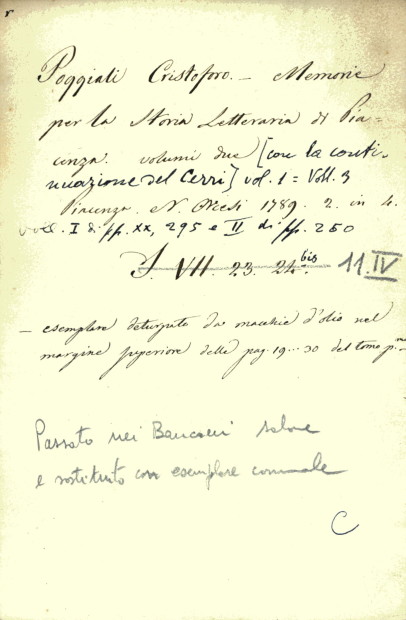 Poggiali Cristoforo. — Memorie
per la Storia Letteraria di Pia=
cenza. volumi due [con la conti-
nuazione del Cerri] vol. 1 = Voll. 3
Piacenza. N. Orcesi 1789. 2. in 4.
voll. I di pp. xx, 295 e II di pp. 250
S. VII. 23. 24 bis 11. IV
— esemplare deturpato da macchie d'olio nel
margine superiore delle pag. 19...30 del tomo p.mo
Passato nei Banconi salone
e sostituito con esemplare comunale
C